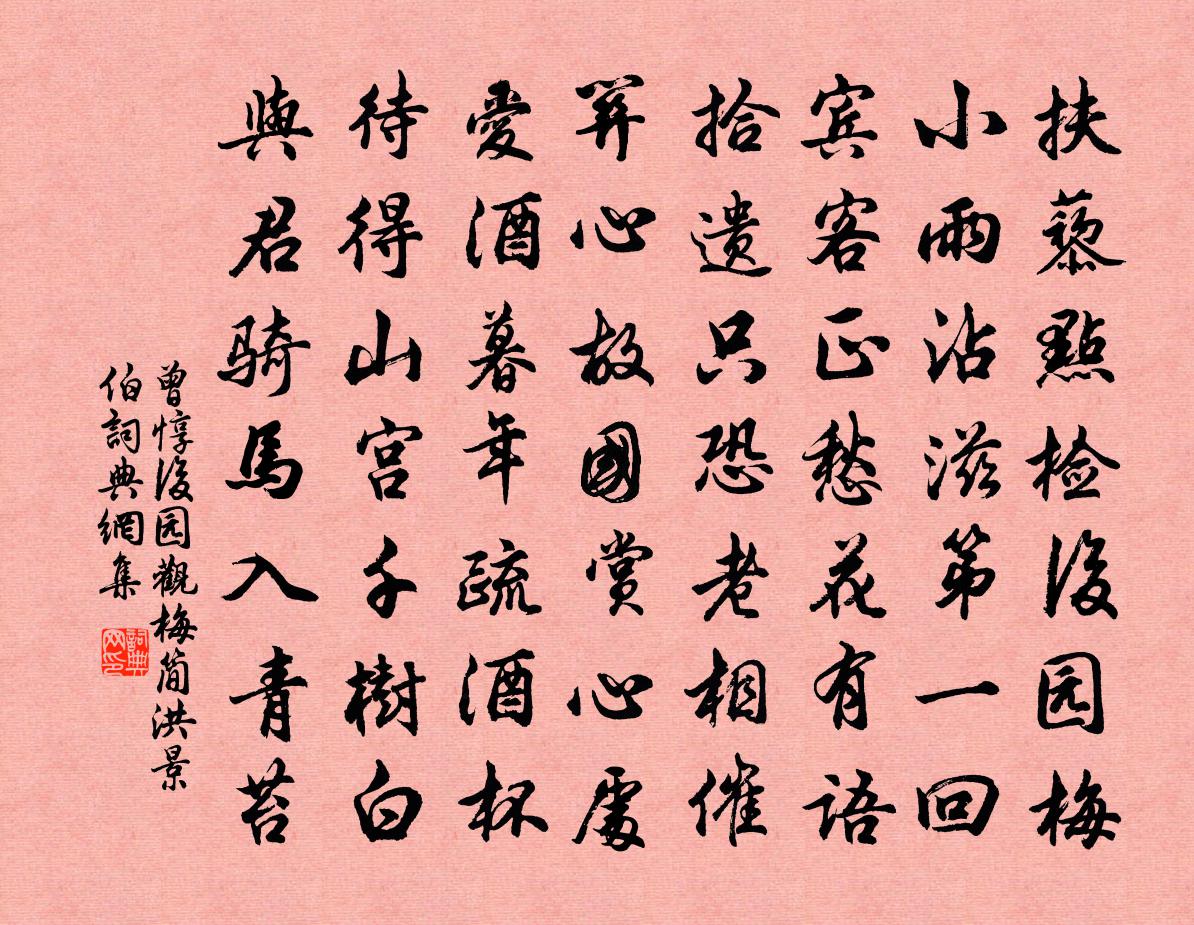 扶藜點检後园梅
小雨沾滋第一回
宾客正愁花有語
拾遗只恐老相催
关心故國赏心處
愛酒暮年疏酒杯
待得山宫千樹白
與君骑馬入青苔
曾惇後园觀梅简洪景
伯詞典網集
詞典网印